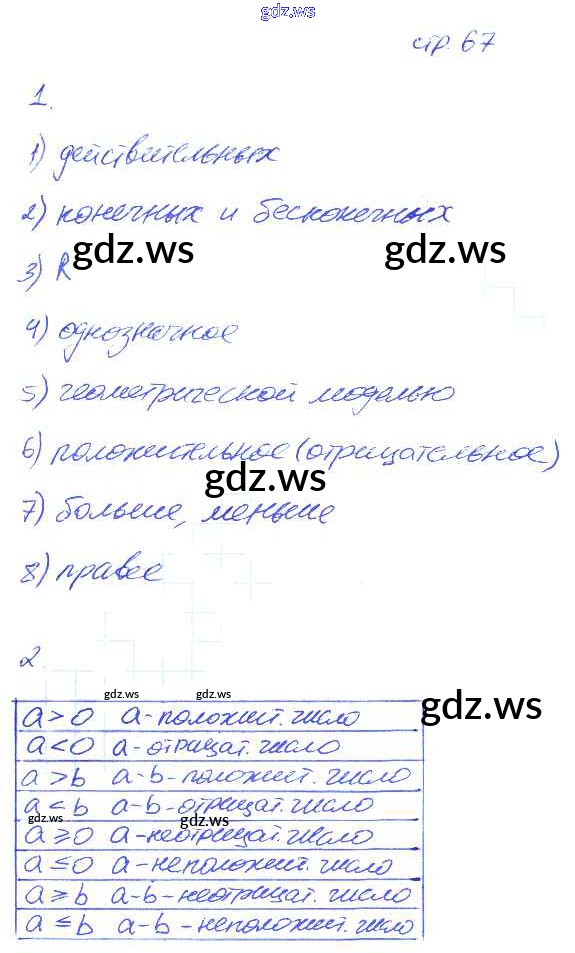 gdz.ws
стр. 67
1.
1) действительных
2) конечных и бесконечных
gdz.ws gdz.ws
3) R
4) однозначное
5) геометрической моделью
6) положительное (отрицательное)
gdz.ws
7) больше, меньше
8) правее
2.
gdz.ws gdz.ws gdz.ws
a > 0 a - положит. число
a < 0 a - отрицат. число
a > b a - b - положит. число
a < b a - b - отрицат. число
gdz.ws gdz.ws
a ⩾ 0 a - неотрицат. число
a ≤ 0 a - неположит. число
a ⩾ b a - b - неотрицат. число
a ≤ b a - b - неположит. число